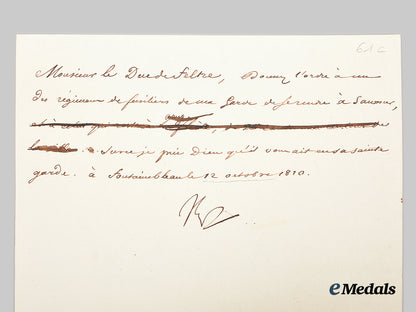 61c
Monsieur le Duc de Feltre, Donnez l'ordre à un
des régimens de fusiliers de ma Garde de se rendre à
et à celui qui est à
Sur ce je prie Dieu qu'il vous ait en sa sainte
garde. à Fontainebleau le 12 octobre 1810.
eMedals